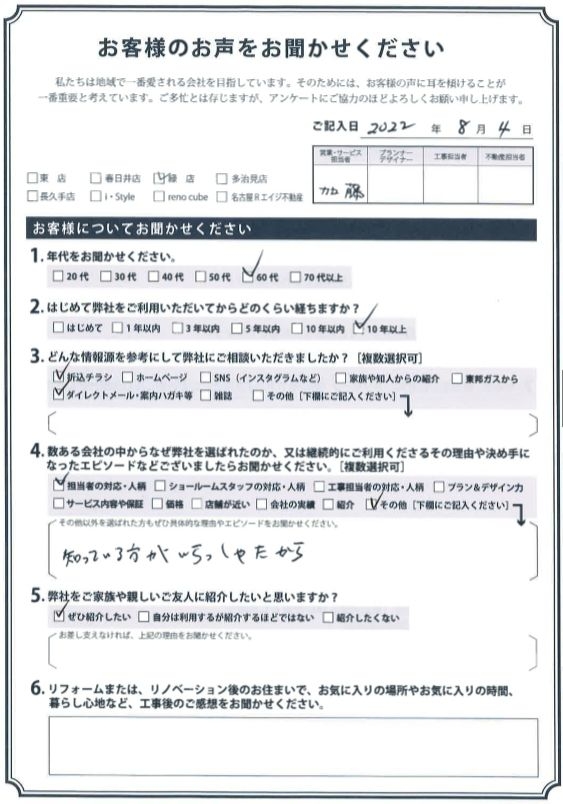 お客様のお声をお聞かせください
私たちは地域で一番愛される会社を目指しています。そのためには、お客様の声に耳を傾けることが
一番重要と考えています。ご多忙とは存じますが、アンケートにご協力のほどよろしくお願い申し上げます。
ご記入日 2022 年 8 月 4 日
営業・サービス担当者 プランナーデザイナー 工事担当者 不動産担当者
加藤
□東 店 □春日井店 ☑緑 店 □多治見店
□長久手店 □i・Style □reno cube □名古屋Rエイジ不動産
お客様についてお聞かせください
1. 年代をお聞かせください。
□20代 □30代 □40代 □50代 ☑60代 □70代以上
2. はじめて弊社をご利用いただいてからどのくらい経ちますか？
□はじめて □1年以内 □3年以内 □5年以内 □10年以内 ☑10年以上
3. どんな情報源を参考にして弊社にご相談いただきましたか？［複数選択可］
☑折込チラシ □ホームページ □SNS（インスタグラムなど） □家族や知人からの紹介 □東邦ガスから
☑ダイレクトメール・案内ハガキ等 □雑誌 □その他［下欄にご記入ください］
4. 数ある会社の中からなぜ弊社を選ばれたのか、又は継続的にご利用くださるその理由や決め手に
なったエピソードなどございましたらお聞かせください。［複数選択可］
☑担当者の対応・人柄 □ショールームスタッフの対応・人柄 □工事担当者の対応・人柄 □プラン&デザイン力
□サービス内容や保証 □価格 □店舗が近い □会社の実績 □紹介 ☑その他［下欄にご記入ください］
その他以外を選ばれた方もぜひ具体的な理由やエピソードをお聞かせください。
知っている方がいらっしゃたから
5. 弊社をご家族や親しいご友人に紹介したいと思いますか？
☑ぜひ紹介したい □自分は利用するが紹介するほどではない □紹介したくない
お差し支えなければ、上記の理由をお聞かせください。
6. リフォームまたは、リノベーション後のお住まいで、お気に入りの場所やお気に入りの時間、
暮らし心地など、工事後のご感想をお聞かせください。